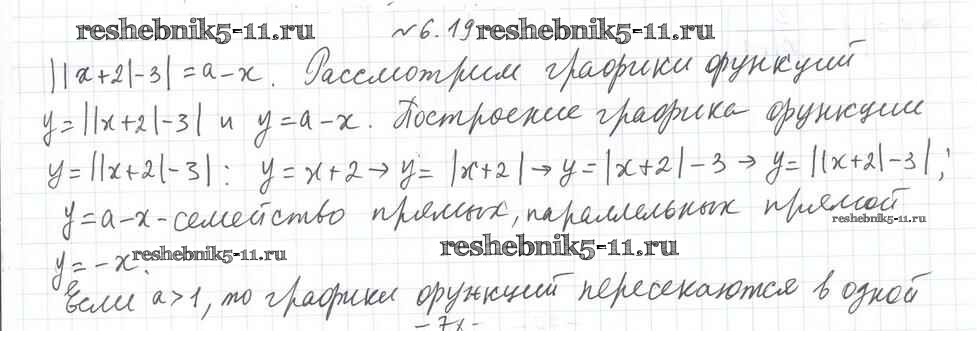 reshebnik5-11.ru №6.19 reshebnik5-11.ru
||x+2|-3|=a-x. Рассмотрим графики функций
y=||x+2|-3| и y=a-x. Построение графика функции
y=||x+2|-3|: y=x+2→y=|x+2|→y=|x+2|-3→y=||x+2|-3|;
y=a-x-семейство прямых, параллельных прямой
reshebnik5-11.ru
y=-x. reshebnik5-11.ru reshebnik5-11.ru
Если a>1, то графики функций пересекаются в одной